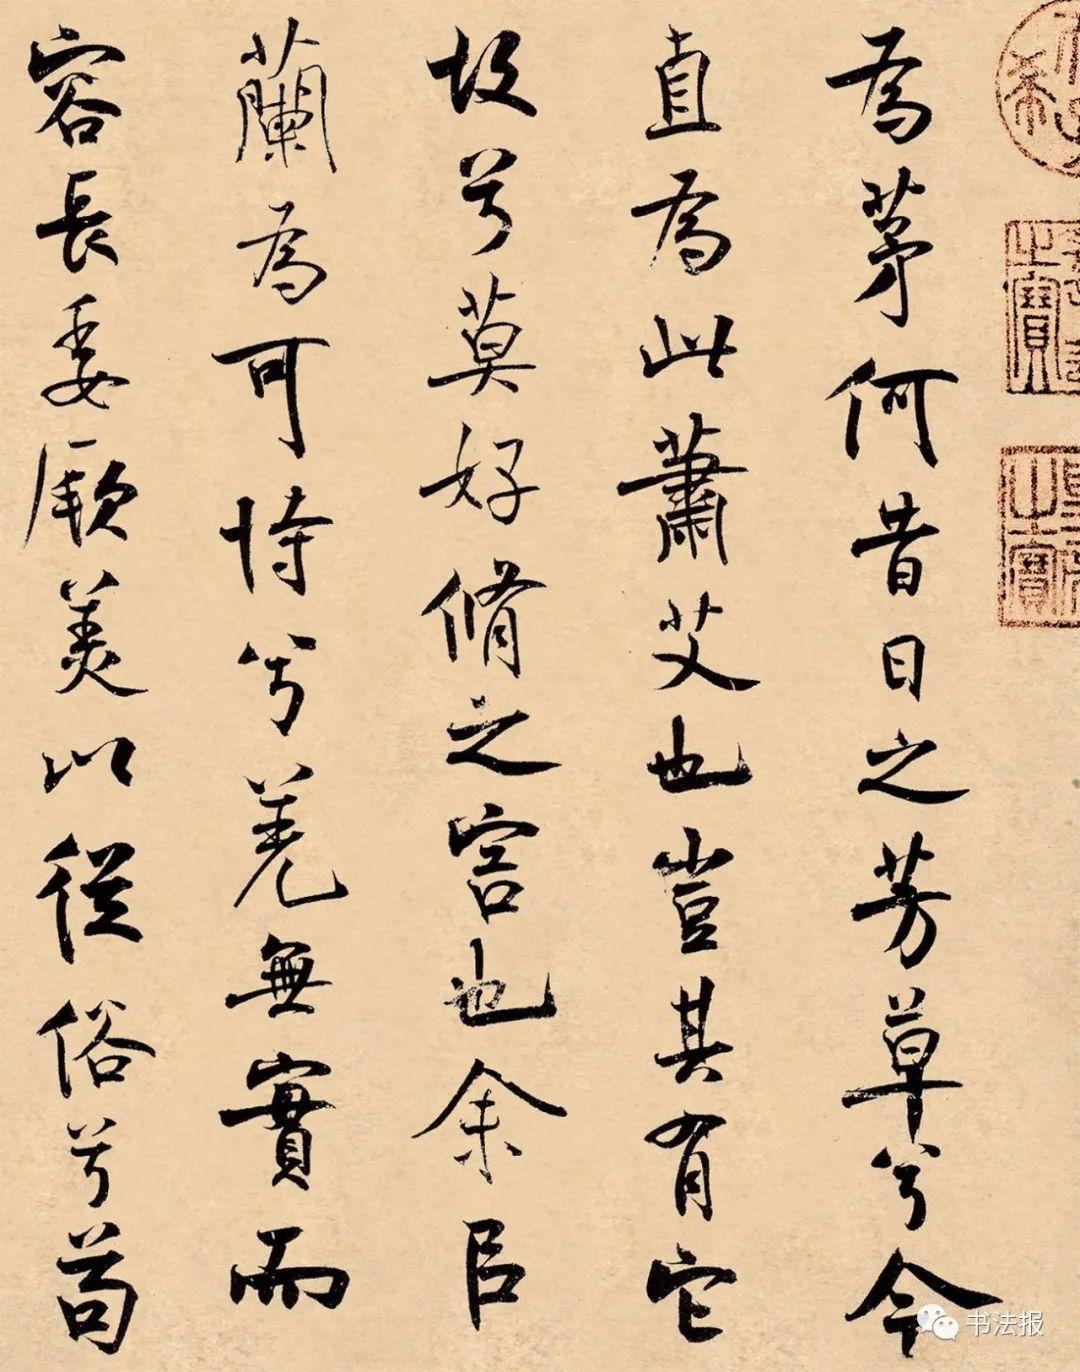 為茅何昔日之芳草兮今
直為此蕭艾也豈其有它
故兮莫好脩之害也余㠯
蘭為可恃兮羌無實而
容長委厥美以從俗兮苟
之寶
之寶
书法报